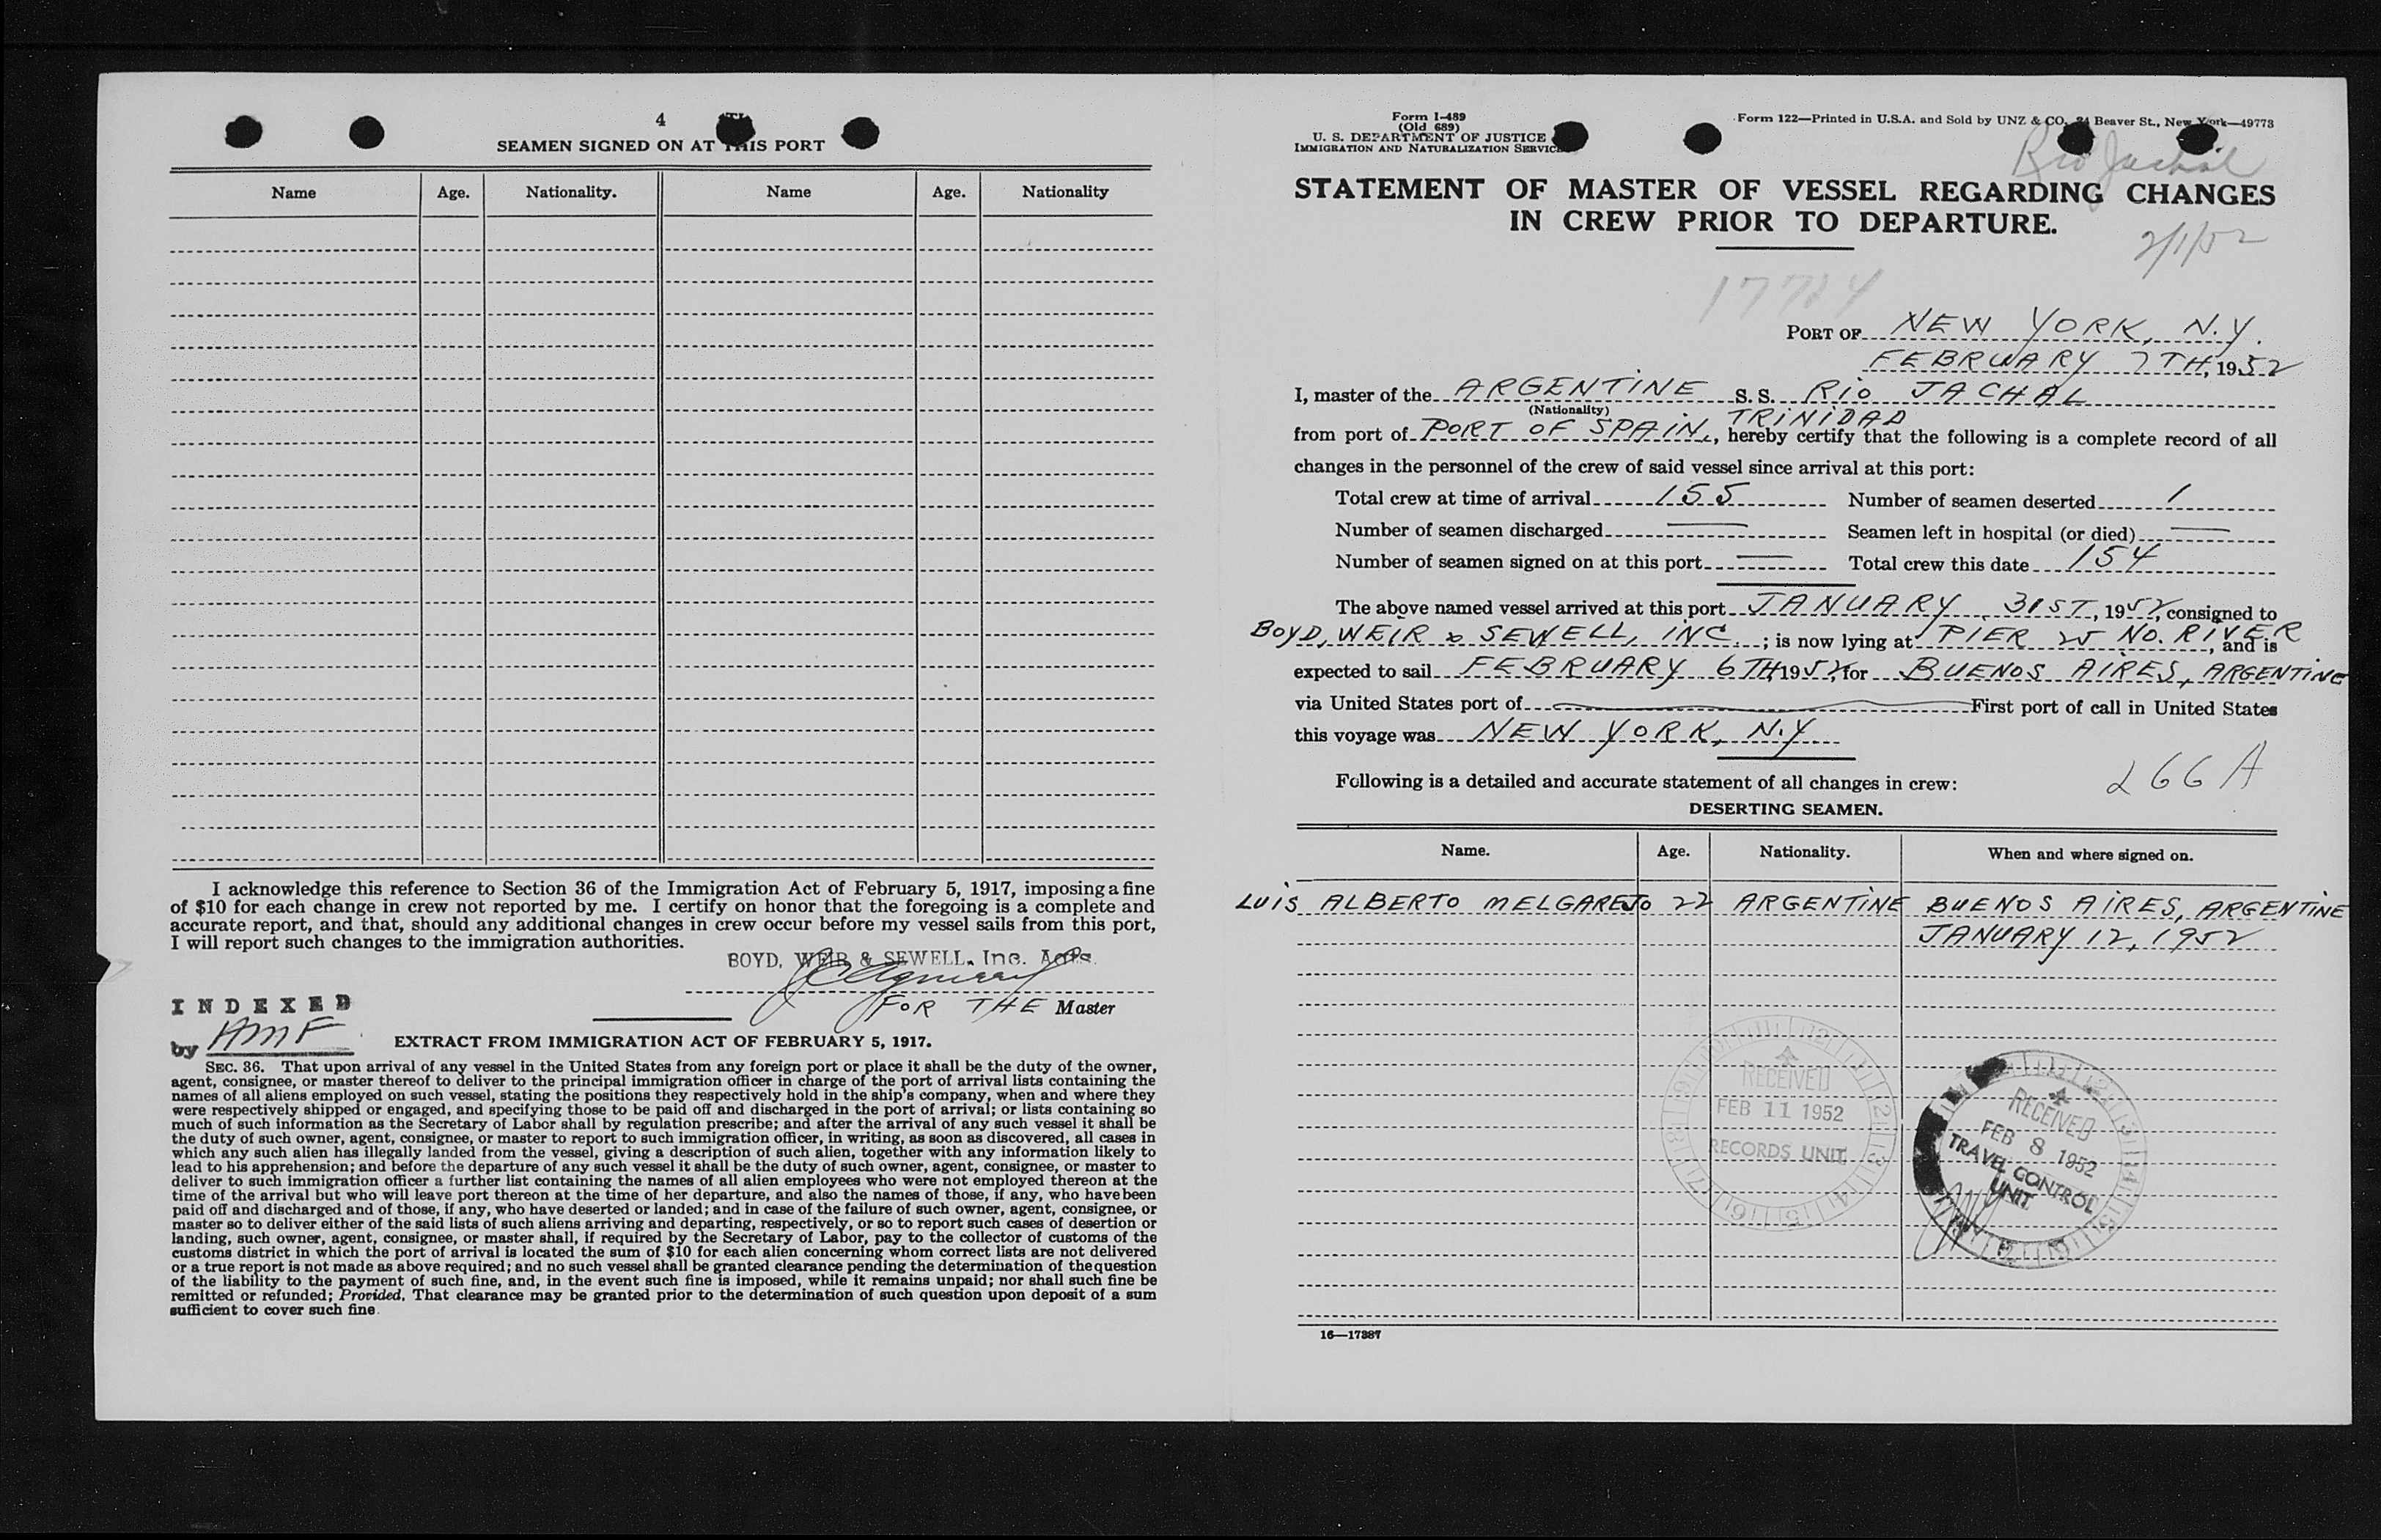 4
SEAMEN SIGNED ON AT THIS PORT
Name Age. Nationality. Name Age. Nationality
I acknowledge this reference to Section 36 of the Immigration Act of February 5, 1917, imposing a fine
of $10 for each change in crew not reported by me. I certify on honor that the foregoing is a complete and
accurate report, and that, should any additional changes in crew occur before my vessel sails from this port,
I will report such changes to the immigration authorities.
BOYD, WEIR & SEWELL, Inc. Agts.
FOR THE Master
INDEXED
by AMF
EXTRACT FROM IMMIGRATION ACT OF FEBRUARY 5, 1917.
SEC. 36. That upon arrival of any vessel in the United States from any foreign port or place it shall be the duty of the owner,
agent, consignee, or master thereof to deliver to the principal immigration officer in charge of the port of arrival lists containing the
names of all aliens employed on such vessel, stating the positions they respectively hold in the ship's company, when and where they
were respectively shipped or engaged, and specifying those to be paid off and discharged in the port of arrival; or lists containing so
much of such information as the Secretary of Labor shall by regulation prescribe; and after the arrival of any such vessel it shall be
the duty of such owner, agent, consignee, or master to report to such immigration officer, in writing, as soon as discovered, all cases in
which any such alien has illegally landed from the vessel, giving a description of such alien, together with any information likely to
lead to his apprehension; and before the departure of any such vessel it shall be the duty of such owner, agent, consignee, or master to
deliver to such immigration officer a further list containing the names of all alien employees who were not employed thereon at the
time of the arrival but who will leave port thereon at the time of her departure, and also the names of those, if any, who have been
paid off and discharged and of those, if any, who have deserted or landed; and in case of the failure of such owner, agent, consignee, or
master so to deliver either of the said lists of such aliens arriving and departing, respectively, or so to report such cases of desertion or
landing, such owner, agent, consignee, or master shall, if required by the Secretary of Labor, pay to the collector of customs of the
customs district in which the port of arrival is located the sum of $10 for each alien concerning whom correct lists are not delivered
or a true report is not made as above required; and no such vessel shall be granted clearance pending the determination of the question
of the liability to the payment of such fine, and, in the event such fine is imposed, while it remains unpaid; nor shall such fine be
remitted or refunded; Provided, That clearance may be granted prior to the determination of such question upon deposit of a sum
sufficient to cover such fine.
Form I-489
(Old 689)
U. S. DEPARTMENT OF JUSTICE
IMMIGRATION AND NATURALIZATION SERVICE
Form 122—Printed in U.S.A. and Sold by UNZ & CO. 24 Beaver St., New York—49773
Rio Jachal
STATEMENT OF MASTER OF VESSEL REGARDING CHANGES
IN CREW PRIOR TO DEPARTURE.
2/1/52
17724
PORT OF NEW YORK, N.Y.
FEBRUARY 7TH, 1952
I, master of the ARGENTINE S. S. RIO JACHAL
(Nationality)
from port of PORT OF SPAIN, TRINIDAD, hereby certify that the following is a complete record of all
changes in the personnel of the crew of said vessel since arrival at this port:
Total crew at time of arrival 155 Number of seamen deserted 1
Number of seamen discharged — Seamen left in hospital (or died) —
Number of seamen signed on at this port — Total crew this date 154
The above named vessel arrived at this port JANUARY 31ST, 1952, consigned to
BOYD, WEIR & SEWELL, INC.; is now lying at PIER 25 NO. RIVER, and is
expected to sail FEBRUARY 6TH, 1952, for BUENOS AIRES, ARGENTINE
via United States port of — First port of call in United States
this voyage was NEW YORK, N.Y.
Following is a detailed and accurate statement of all changes in crew:
266A
DESERTING SEAMEN.
Name. Age. Nationality. When and where signed on.
LUIS ALBERTO MELGAREJO 22 ARGENTINE BUENOS AIRES, ARGENTINE
JANUARY 12, 1952
RECEIVED
FEB 11 1952
RECORDS UNIT
RECEIVED
FEB 8 1952
TRAVEL CONTROL
UNIT
16—17387